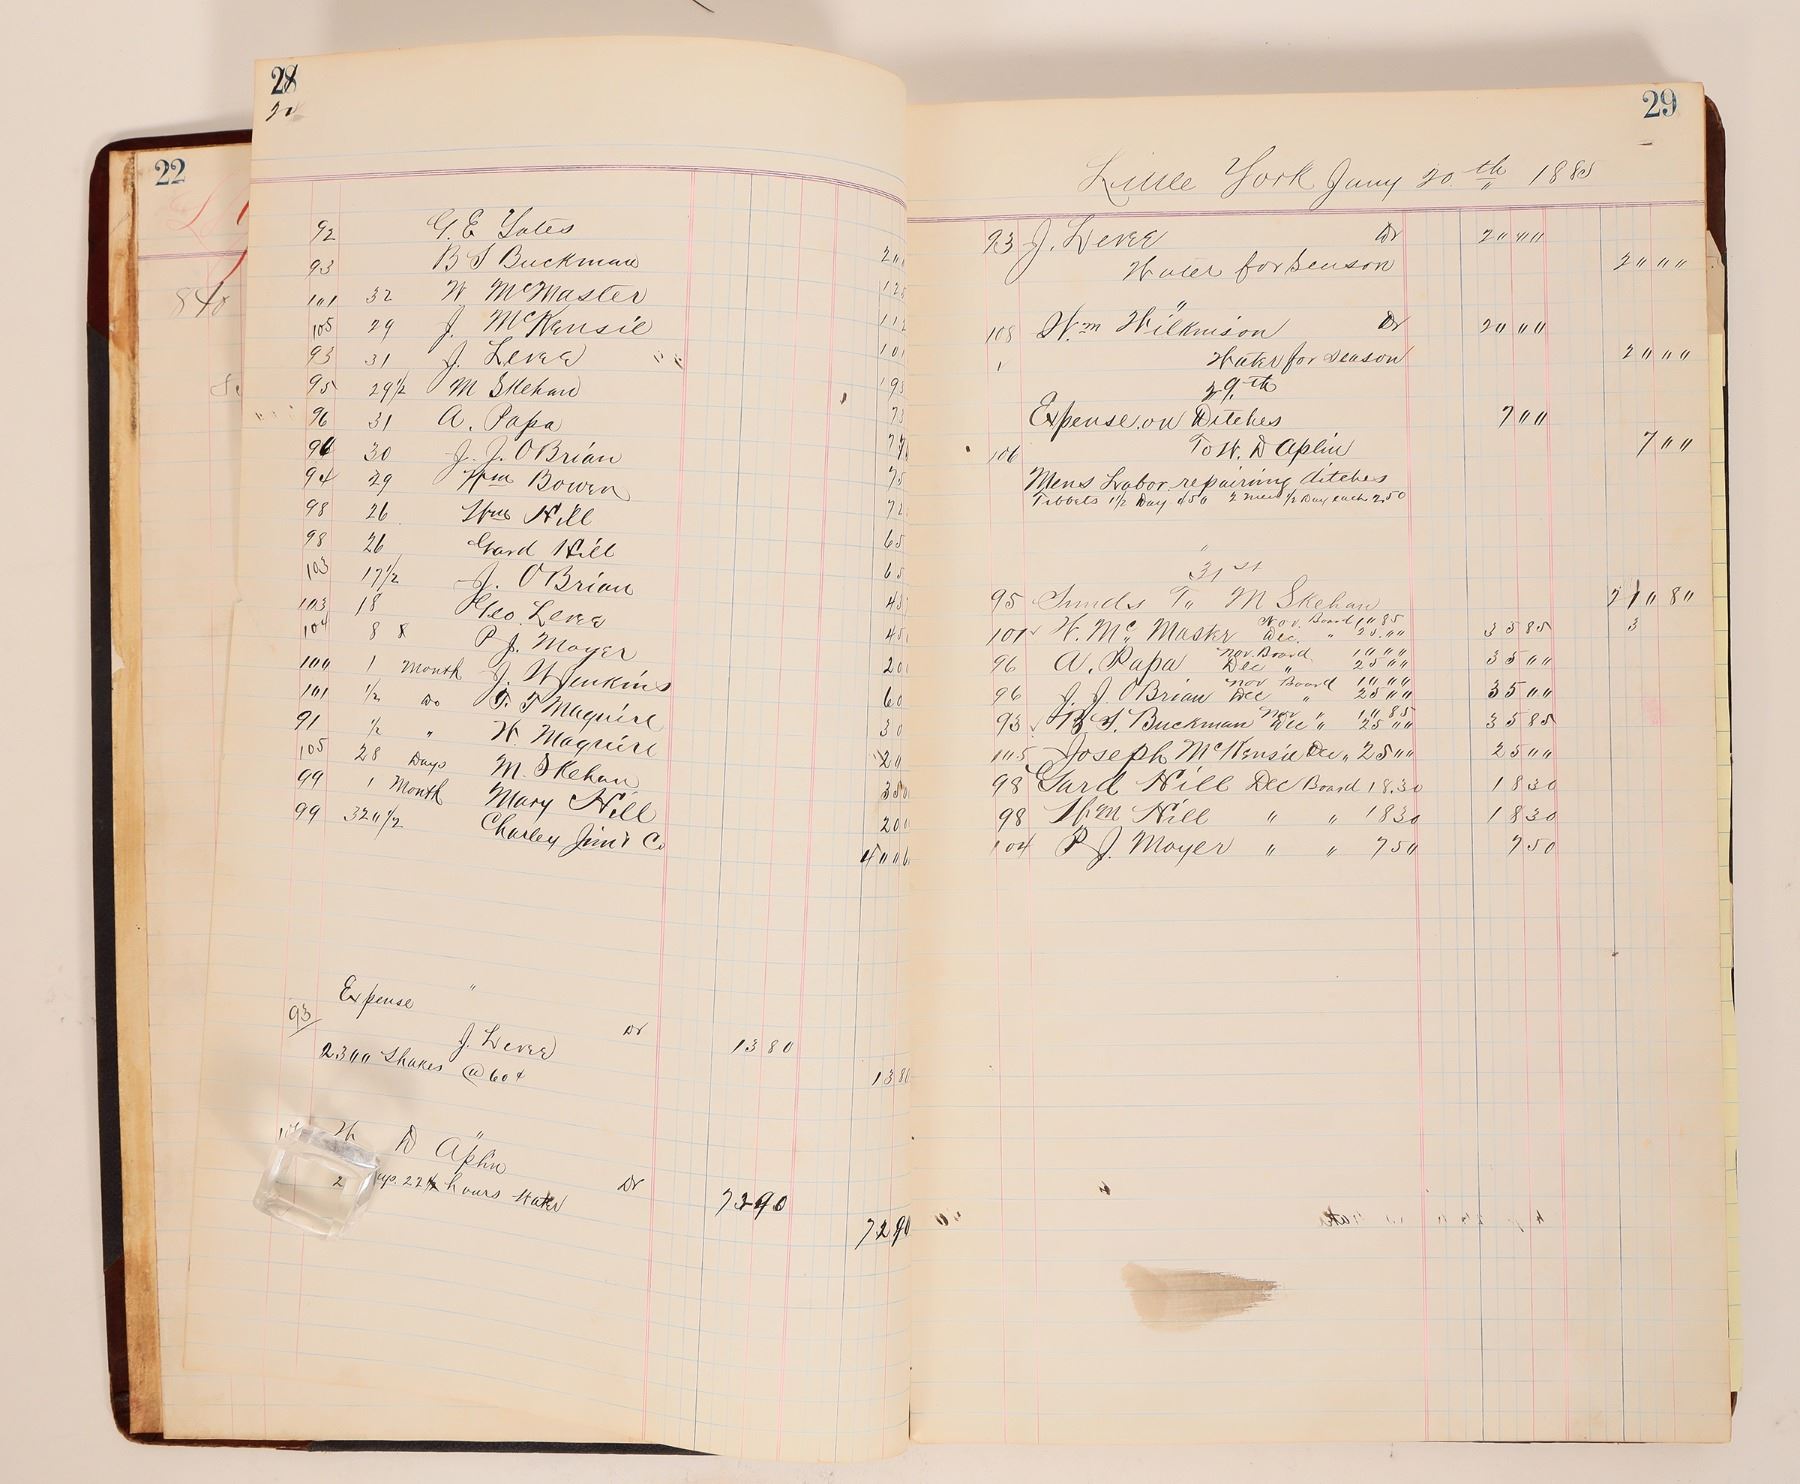 22
840
28
92 G. E Yates
93 B S Buckman
101 32 W McMaster
105 29 J. McKensie
93 31 J. Levee
95 29 1/2 M Skehan
96 31 A. Papa
96 30 J. J. O Brian
94 29 Wm Bowen
98 26 Wm Hill
98 26 Gard Hill
103 17 1/2 J. O Brian
103 18 Geo. Levee
104 8 P J. Moyer
100 1 Month J. W Jenkins
101 1/2 Do F. F Maguire
91 1/2 " W. Maguire
105 28 Days M. Skehan
99 1 Month Mary Hill
99 320 1/2 Charley Jim & Co
Expense "
93 J. Levee Dr 1380
2300 Shakes @ 60¢ 1380
W D Aplin Dr
22 1/2 hours Water 7390
7290
29
Little York Jany 20 th 1885
93 J. Levee Dr 2000
Water for Season 2000
"
108 Wm Wilkinson Dr 2000
Water for Season 2000
29 th
Expense on Ditches 700
106 To W. D Aplin 700
Mens Labor repairing ditches
Tibbets 1 1/2 Day 450 2 men 1/2 Day each 2.50
"
31 st
95 Sunds To M Skehan 21080
101 W. Mc Master Nov. Board 1085
Dec. " 25.00 3585
96 A. Papa Nov Board 1000
Dec " 2500 3500
96 J. J. O Brian Nov Board 1000
Dec " 2500 3500
93 B. S. Buckman Nov " 1085
Dec " 2500 3585
105 Joseph McKensie Dec " 2500 2500
98 Gard Hill Dec Board 18.30 1830
98 Wm Hill " " 1830 1830
104 P J. Moyer " " 750 750